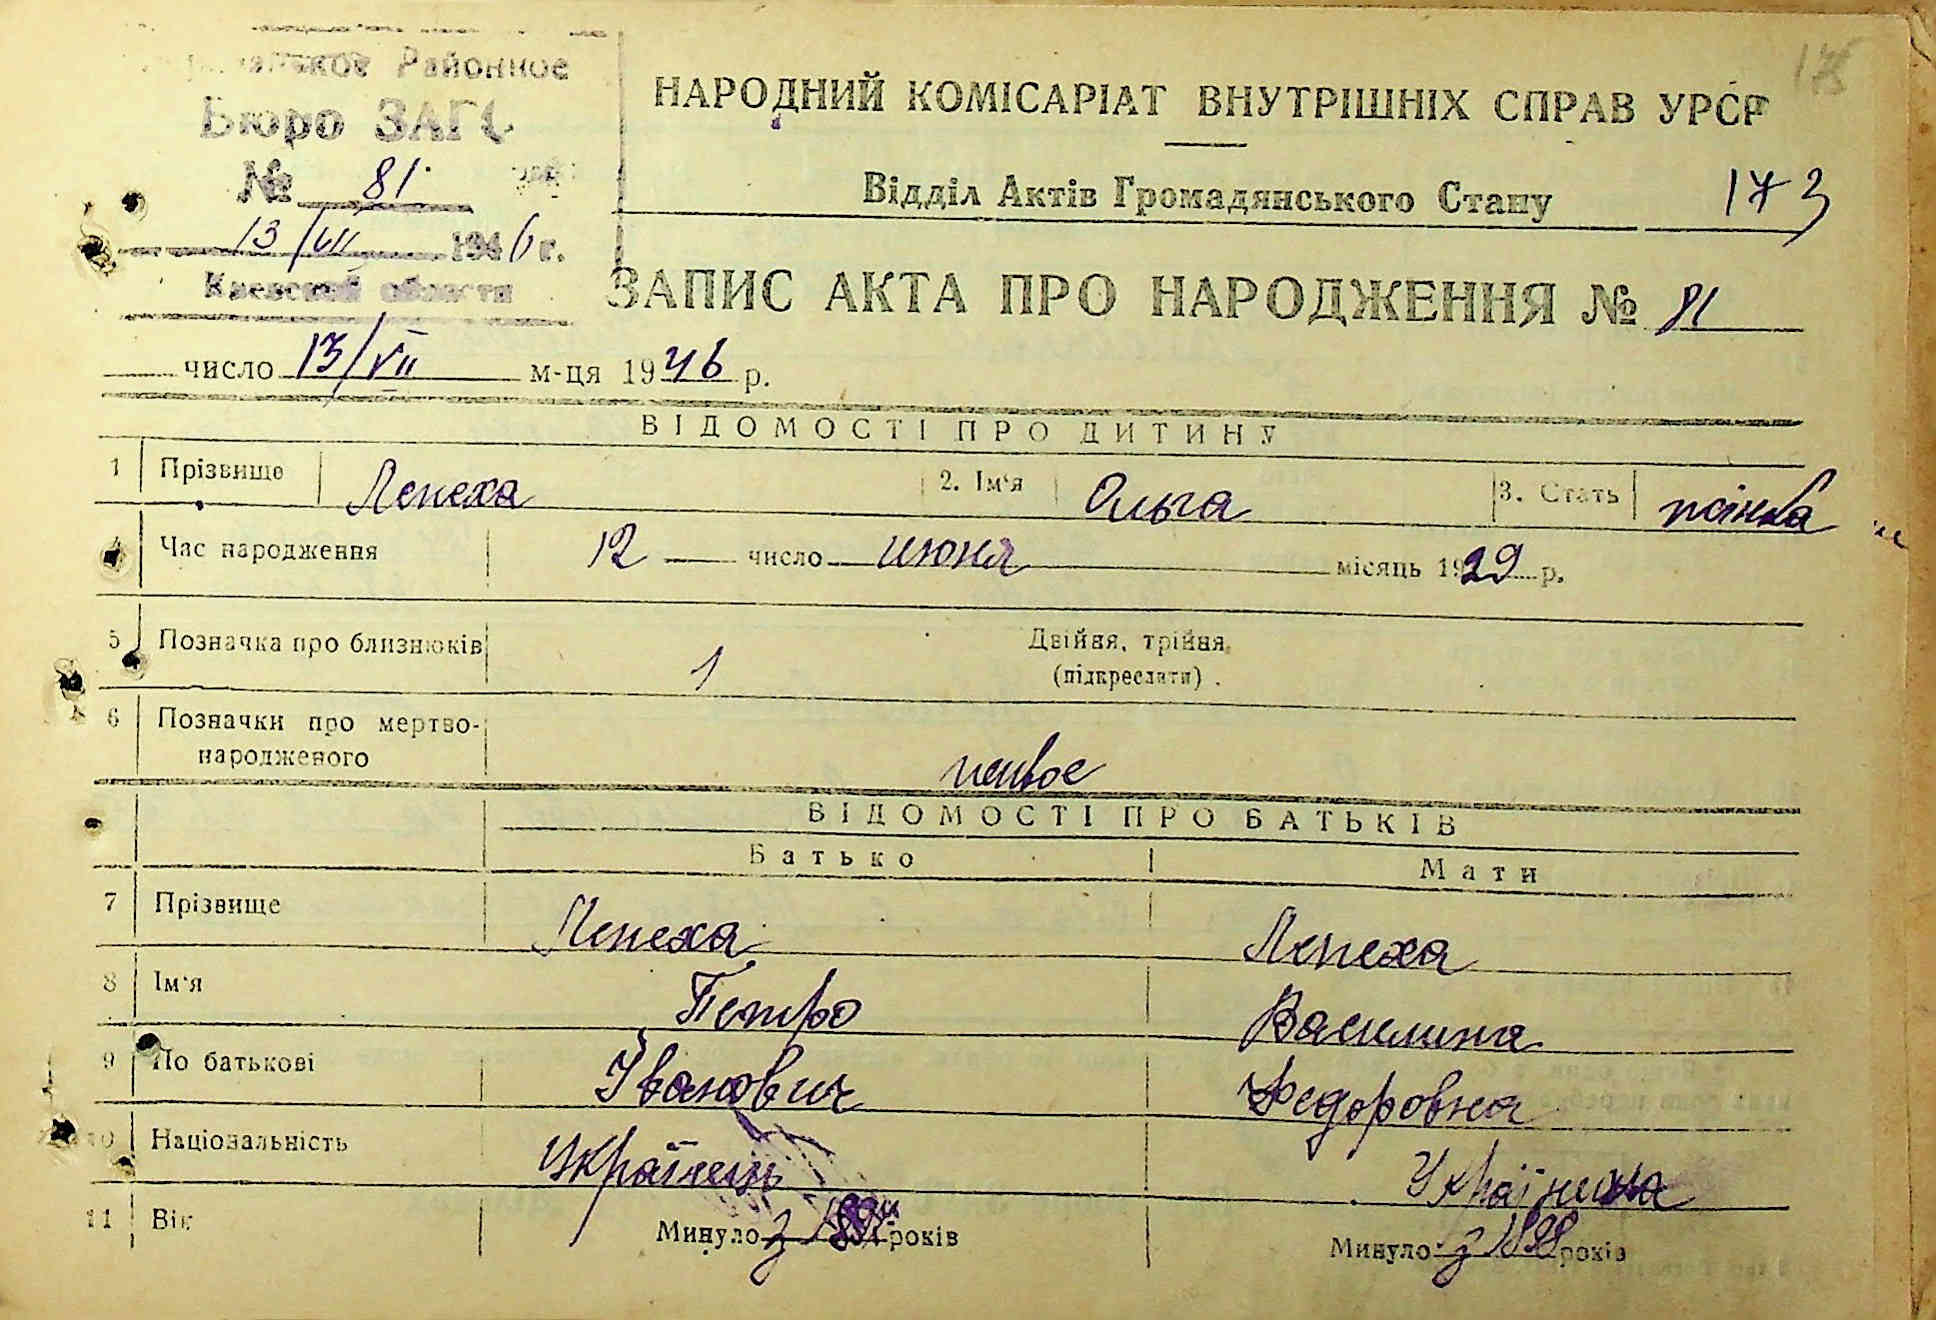 Районное
Бюро ЗАГС
№ 81
13/VII 1946 г.
Киевской области
175
НАРОДНИЙ КОМІСАРІАТ ВНУТРІШНІХ СПРАВ УРСР
Відділ Актів Громадянського Стану
173
ЗАПИС АКТА ПРО НАРОДЖЕННЯ № 81
число 13/VII м-ця 1946 р.
ВІДОМОСТІ ПРО ДИТИНУ
1 Прізвище Лепеха 2. Ім'я Ольга 3. Стать жінка
4 Час народження 12 число июня місяць 1929 р.
5 Позначка про близнюків 1 Двійня, трійня
(підкреслити)
6 Позначки про мертво-
народженого живое
ВІДОМОСТІ ПРО БАТЬКІВ
Батько Мати
7 Прізвище Лепеха Лепеха
8 Ім'я Петро Василина
9 По батькові Іванович Федоровна
10 Національність Українець Українка
11 Вік Минуло з років Минуло з 1898 років